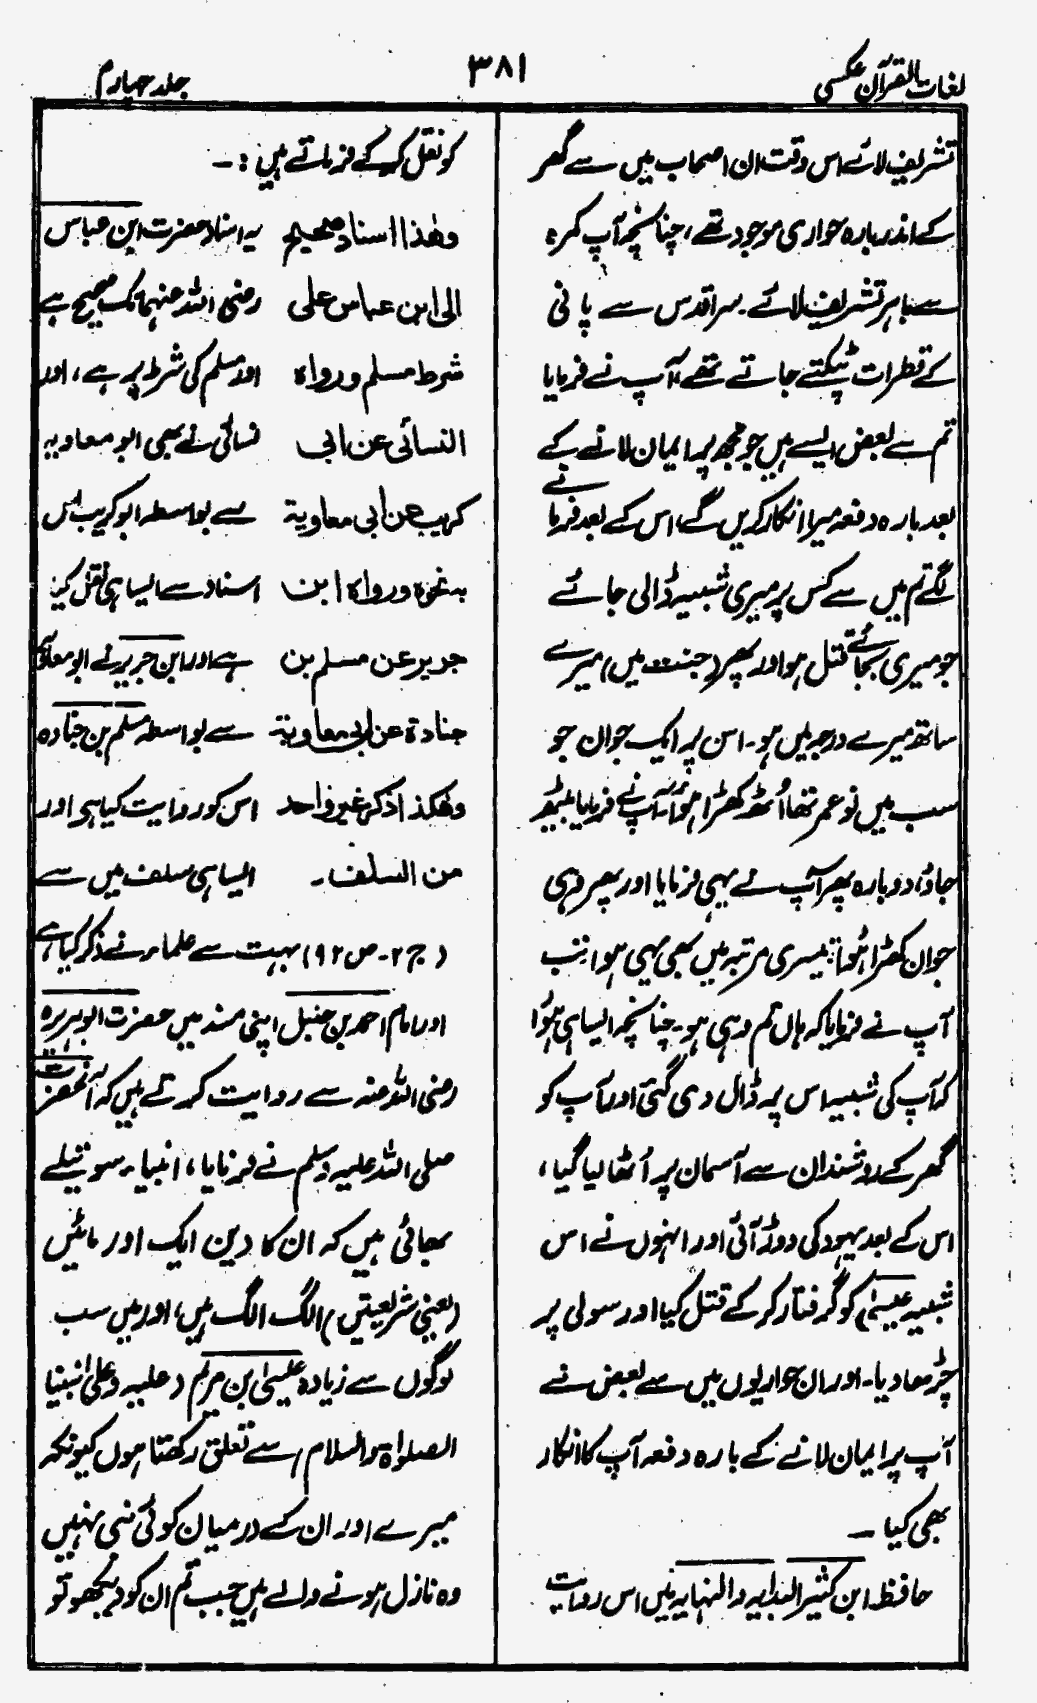 لغات القرآن عکسی
۳۸۱
جلد چہارم
تشریف لائے اس وقت ان اصحاب میں سے گھر
کے اندر بارہ حواری موجود تھے، چنانچہ آپ کمرہ
سے باہر تشریف لائے۔ سر اقدس سے پانی
کے قطرات ٹپکتے جاتے تھے، آپ نے فرمایا
تم سے بعض ایسے ہیں جو مجھ پر ایمان لانے کے
بعد بارہ دفعہ میرا انکار کریں گے، اس کے بعد فرمانے
لگے تم میں سے کس پر میری شبیہ ڈالی جائے
جو میری بجائے قتل ہو اور پھر (جنت میں) میرے
ساتھ میرے درجہ میں ہو۔ اس پر ایک جوان جو
سب میں نو عمر تھا اُٹھ کھڑا ہوا، آپ نے فرمایا بیٹھ
جاؤ، دوبارہ پھر آپ نے یہی فرمایا اور پھر وہی
جوان کھڑا ہُوا، تیسری مرتبہ میں بھی یہی ہوا، تب
آپ نے فرمایا کہ ہاں تم وہی ہو۔ چنانچہ ایسا ہی ہُوا
کہ آپ کی شبیہ اس پر ڈال دی گئی اور آپ کو
گھر کے روشندان سے آسمان پر اُٹھا لیا گیا،
اس کے بعد یہود کی دوڑ آئی اور انہوں نے اس
شبیہ عیسیٰ کو گرفتار کر کے قتل کیا اور سولی پر
چڑھا دیا۔ اور ان حواریوں میں سے بعض نے
آپ پر ایمان لانے کے بارہ دفعہ آپ کا انکار
بھی کیا ۔
حافظ ابن کثیر البدایہ والنہایہ میں اس روایت
کو نقل کر کے فرماتے ہیں :۔
وھٰذا اسناد صحیح یہ اسناد حضرت ابن عباس
الی ابن عباس علی رضی اللہ عنہما تک صحیح ہے
شرط مسلم ورواہ اور مسلم کی شرط پر ہے، اور
النسائی عن ابی نسائی نے بھی ابو معاویہ
کریب عن ابی معاویۃ سے بواسطہ ابو کریب اس
بہ نحوہ ورواہ ابن اسناد سے ایسا ہی نقل کیا
جریر عن مسلم بن ہے اور ابن جریر نے ابو معاویہ
جنادۃ عن ابی معاویۃ سے بواسطہ مسلم بن جنادہ
وھٰکذا ذکرہ غیر واحد اس کو روایت کیا ہی اور
من السلف ۔ ایسا ہی سلف میں سے
(ج ۲۔ ص ۹۲) بہت سے علماء نے ذکر کیا ہے
اور امام احمد بن حنبل اپنی مسند میں حضرت ابوہریرہ
رضی اللہ عنہ سے روایت کرتے ہیں کہ آنحضرت
صلی اللہ علیہ وسلم نے فرمایا، انبیاء سوتیلے
بھائی ہیں کہ ان کا دین ایک اور مائیں
(یعنی شریعتیں) الگ الگ ہیں، اور میں سب
لوگوں سے زیادہ عیسیٰ ابن مریم (علیہ وعلیٰ نبینا
الصلوٰۃ والسلام) سے تعلق رکھتا ہوں کیونکہ
میرے اور ان کے درمیان کوئی نبی نہیں
وہ نازل ہونے والے ہیں جب تم ان کو دیکھو تو